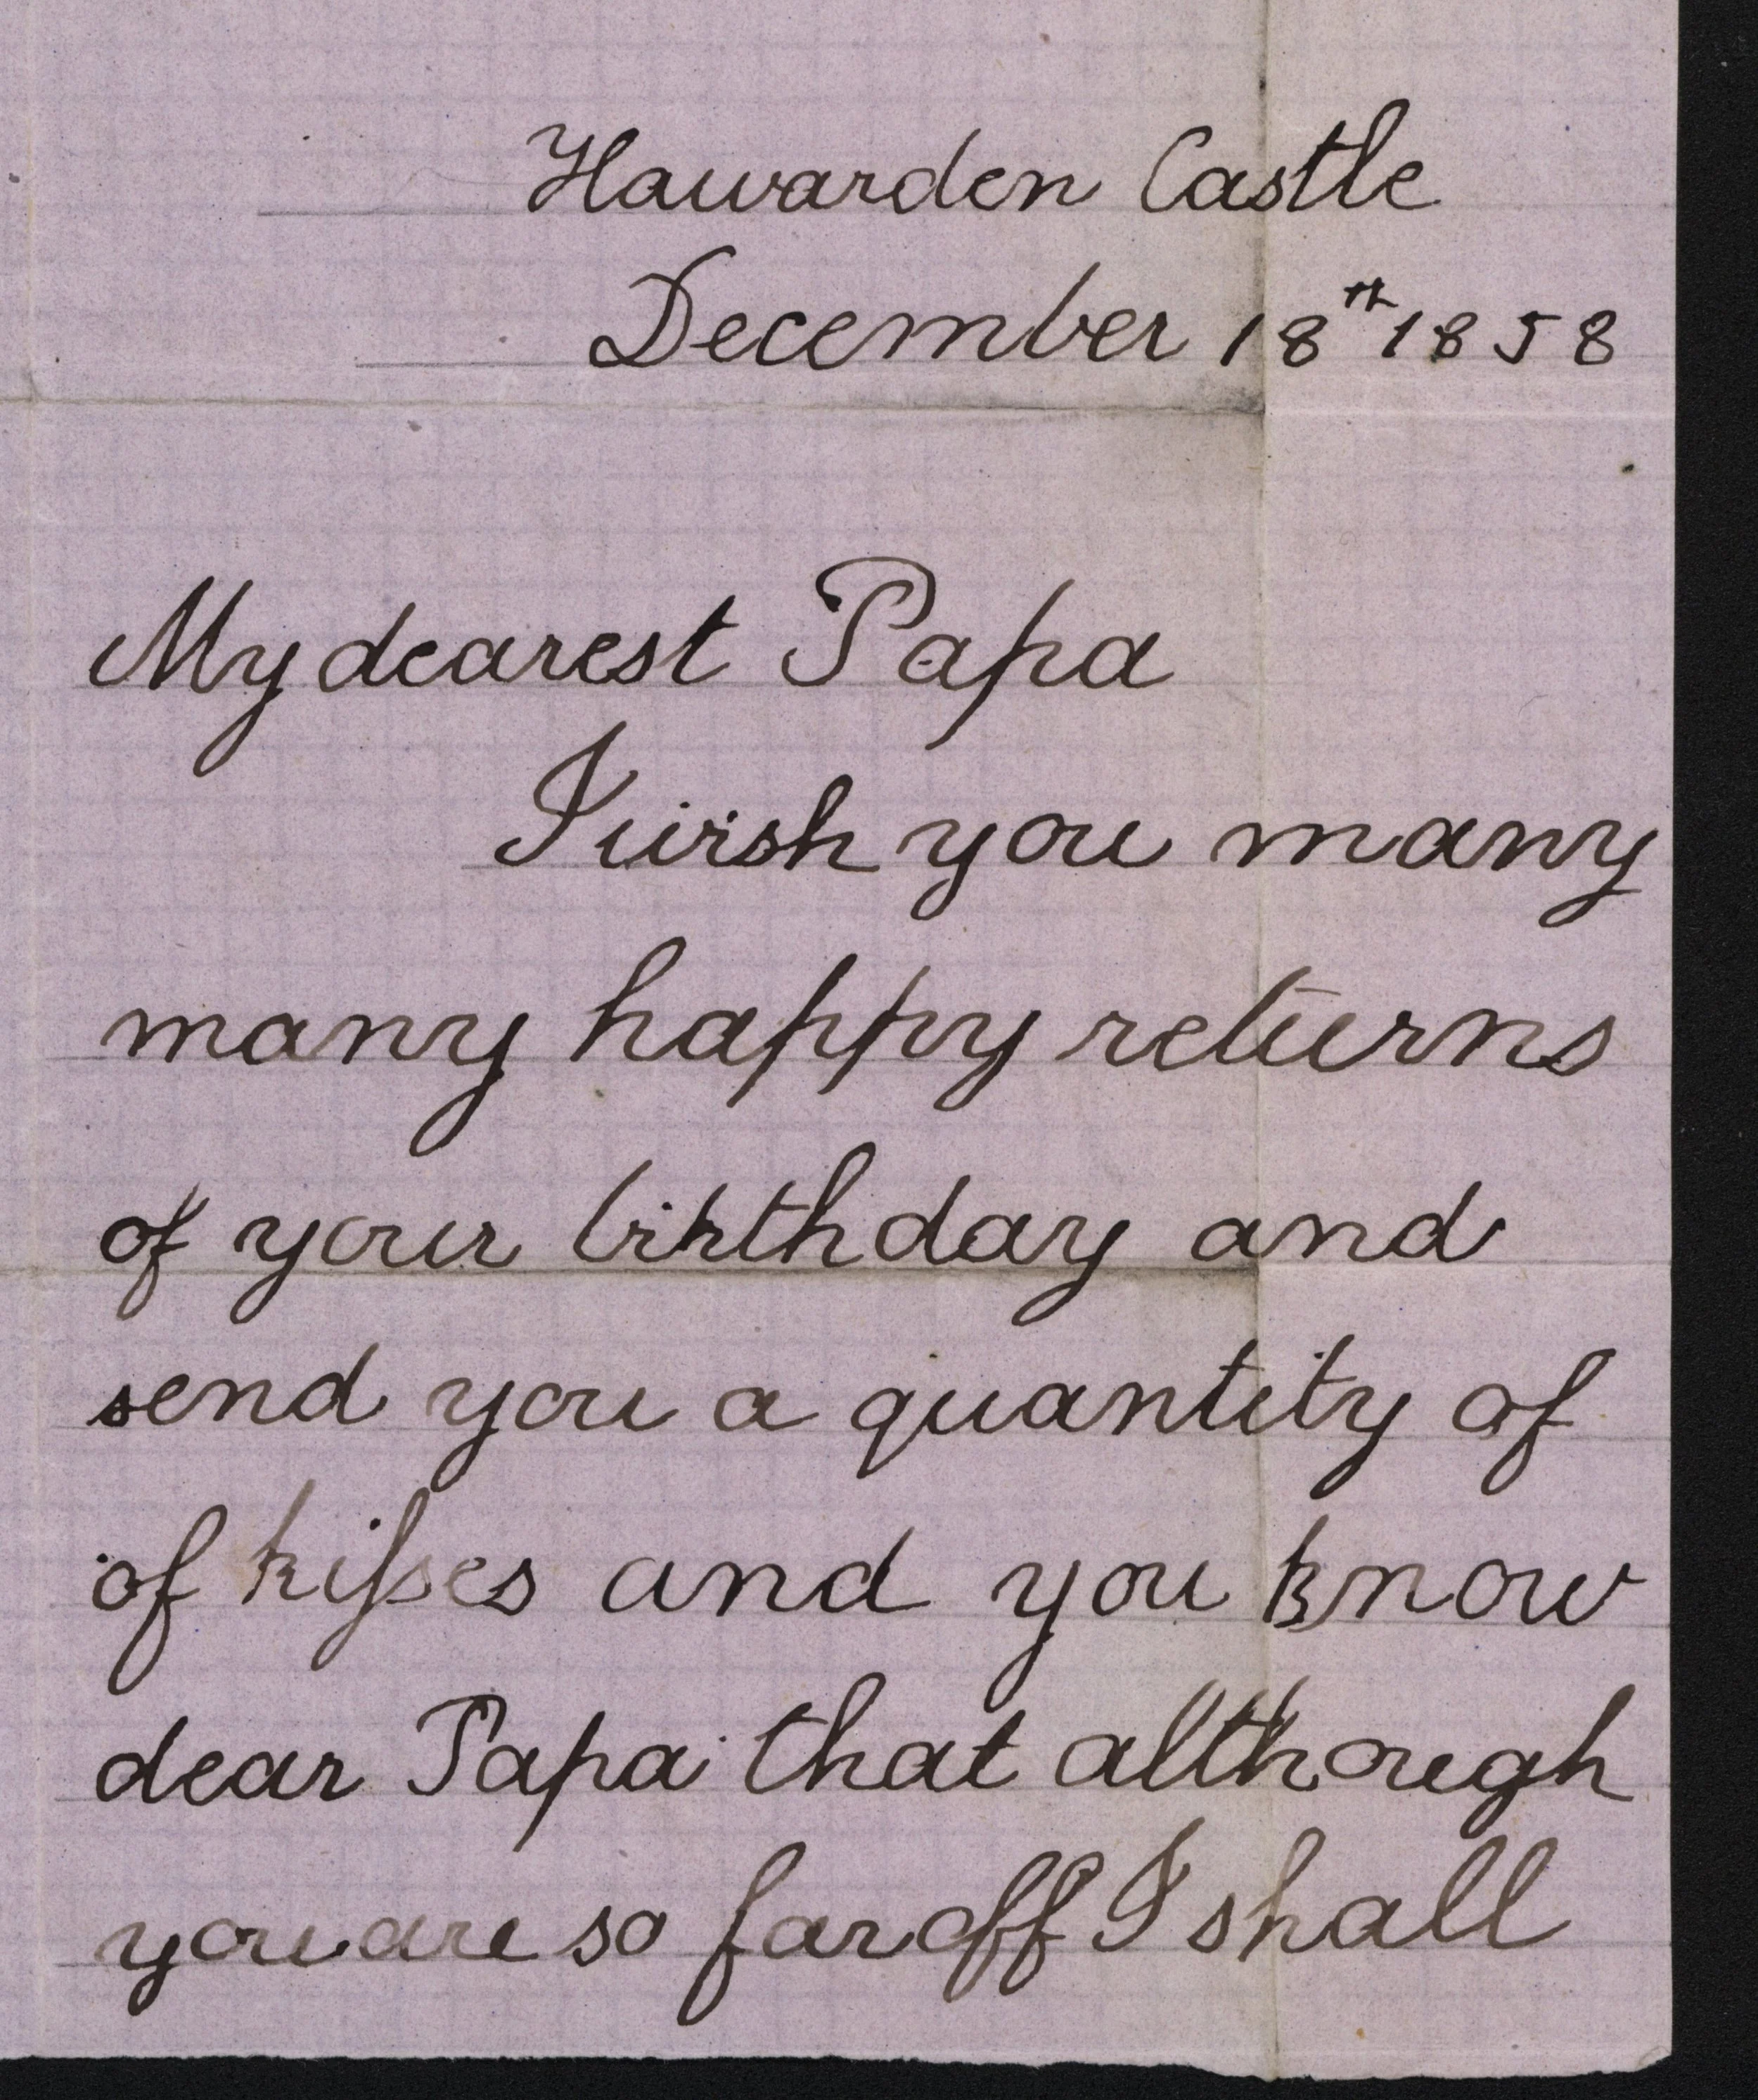 Hawarden Castle
December 18th 1858
My dearest Papa
I wish you many
many happy returns
of your birthday and
send you a quantity of
of kiſses and you know
dear Papa that although
you are so far off I shall